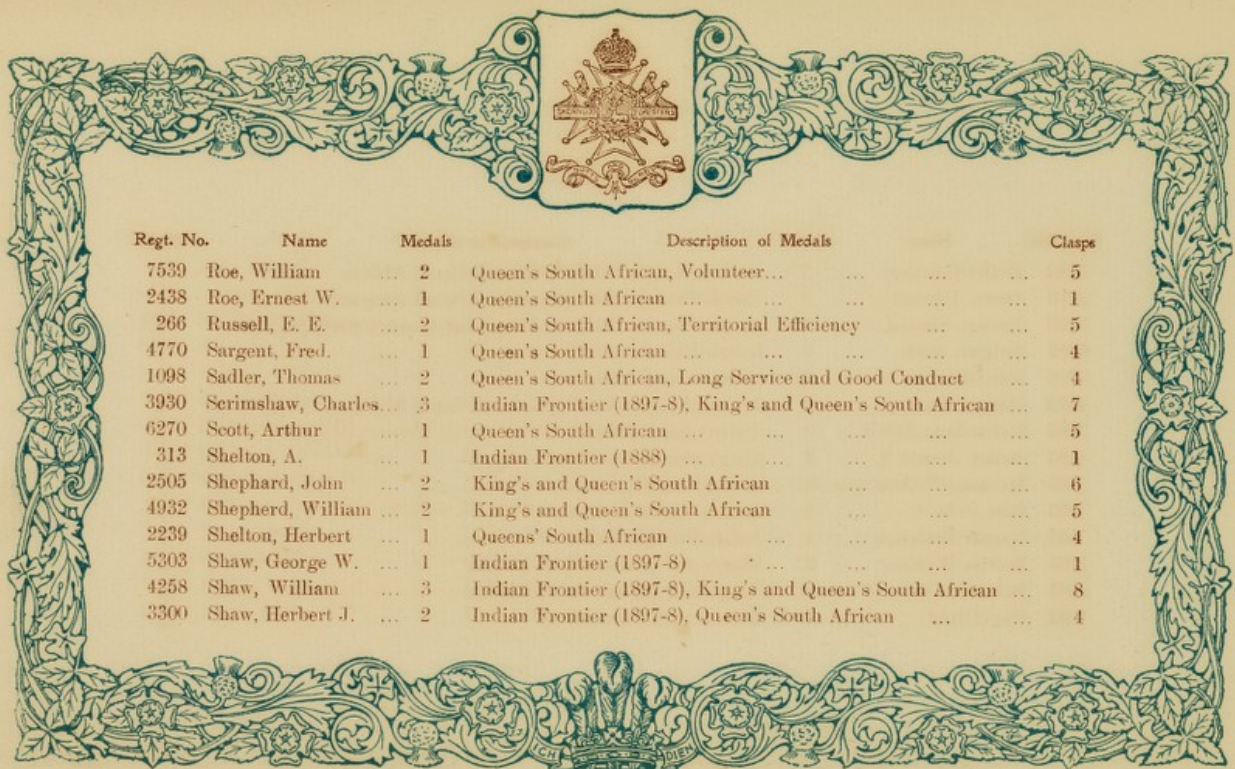 Regt. No. Name Medals Description of Medals Clasps
7539 Roe, William ... 2 Queen's South African, Volunteer... ... ... ... ... 5
2438 Roe, Ernest W. ... 1 Queen's South African ... ... ... ... ... 1
266 Russell, E. E. ... 2 Queen's South African, Territorial Efficiency ... ... 5
4770 Sargent, Fred. ... 1 Queen's South African ... ... ... ... ... 4
1098 Sadler, Thomas ... 2 Queen's South African, Long Service and Good Conduct ... 4
3930 Scrimshaw, Charles... 3 Indian Frontier (1897-8), King's and Queen's South African ... 7
6270 Scott, Arthur ... 1 Queen's South African ... ... ... ... ... 5
313 Shelton, A. ... 1 Indian Frontier (1888) ... ... ... ... ... 1
2505 Shephard, John ... 2 King's and Queen's South African ... ... ... 6
4932 Shepherd, William ... 2 King's and Queen's South African ... ... ... 5
2239 Shelton, Herbert ... 1 Queens' South African ... ... ... ... ... 4
5303 Shaw, George W. ... 1 Indian Frontier (1897-8) ... ... ... ... 1
4258 Shaw, William ... 3 Indian Frontier (1897-8), King's and Queen's South African ... 8
3300 Shaw, Herbert J. ... 2 Indian Frontier (1897-8), Queen's South African ... ... 4
ICH DIEN